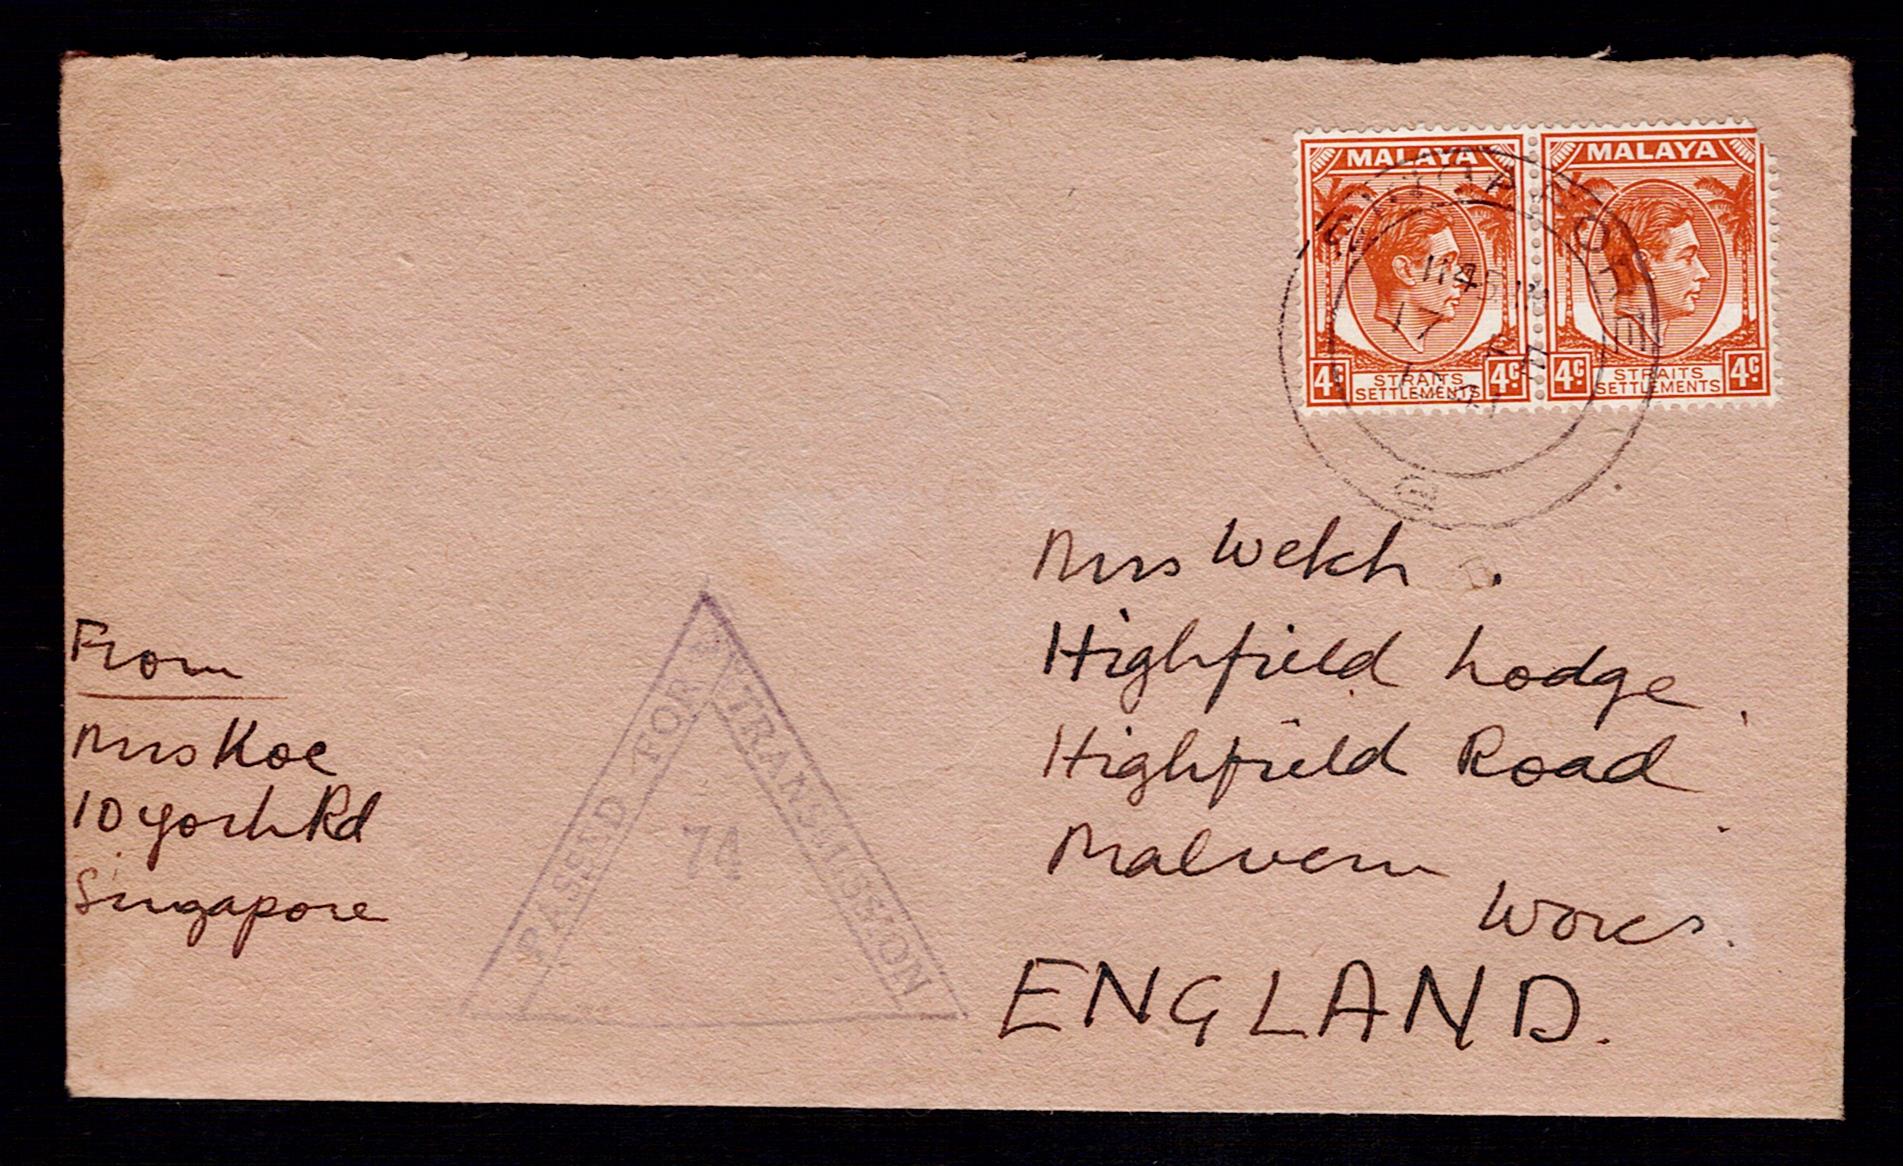 MALAYA MALAYA
4c STRAITS SETTLEMENTS 4c 4c STRAITS SETTLEMENTS 4c
SINGAPORE
1145
17
Mrs Welch.
Highfield Lodge,
Highfield Road
Malvern
Worcs.
ENGLAND.
From
Mrs Koe
10 York Rd
Singapore
PASSED FOR TRANSMISSION
74